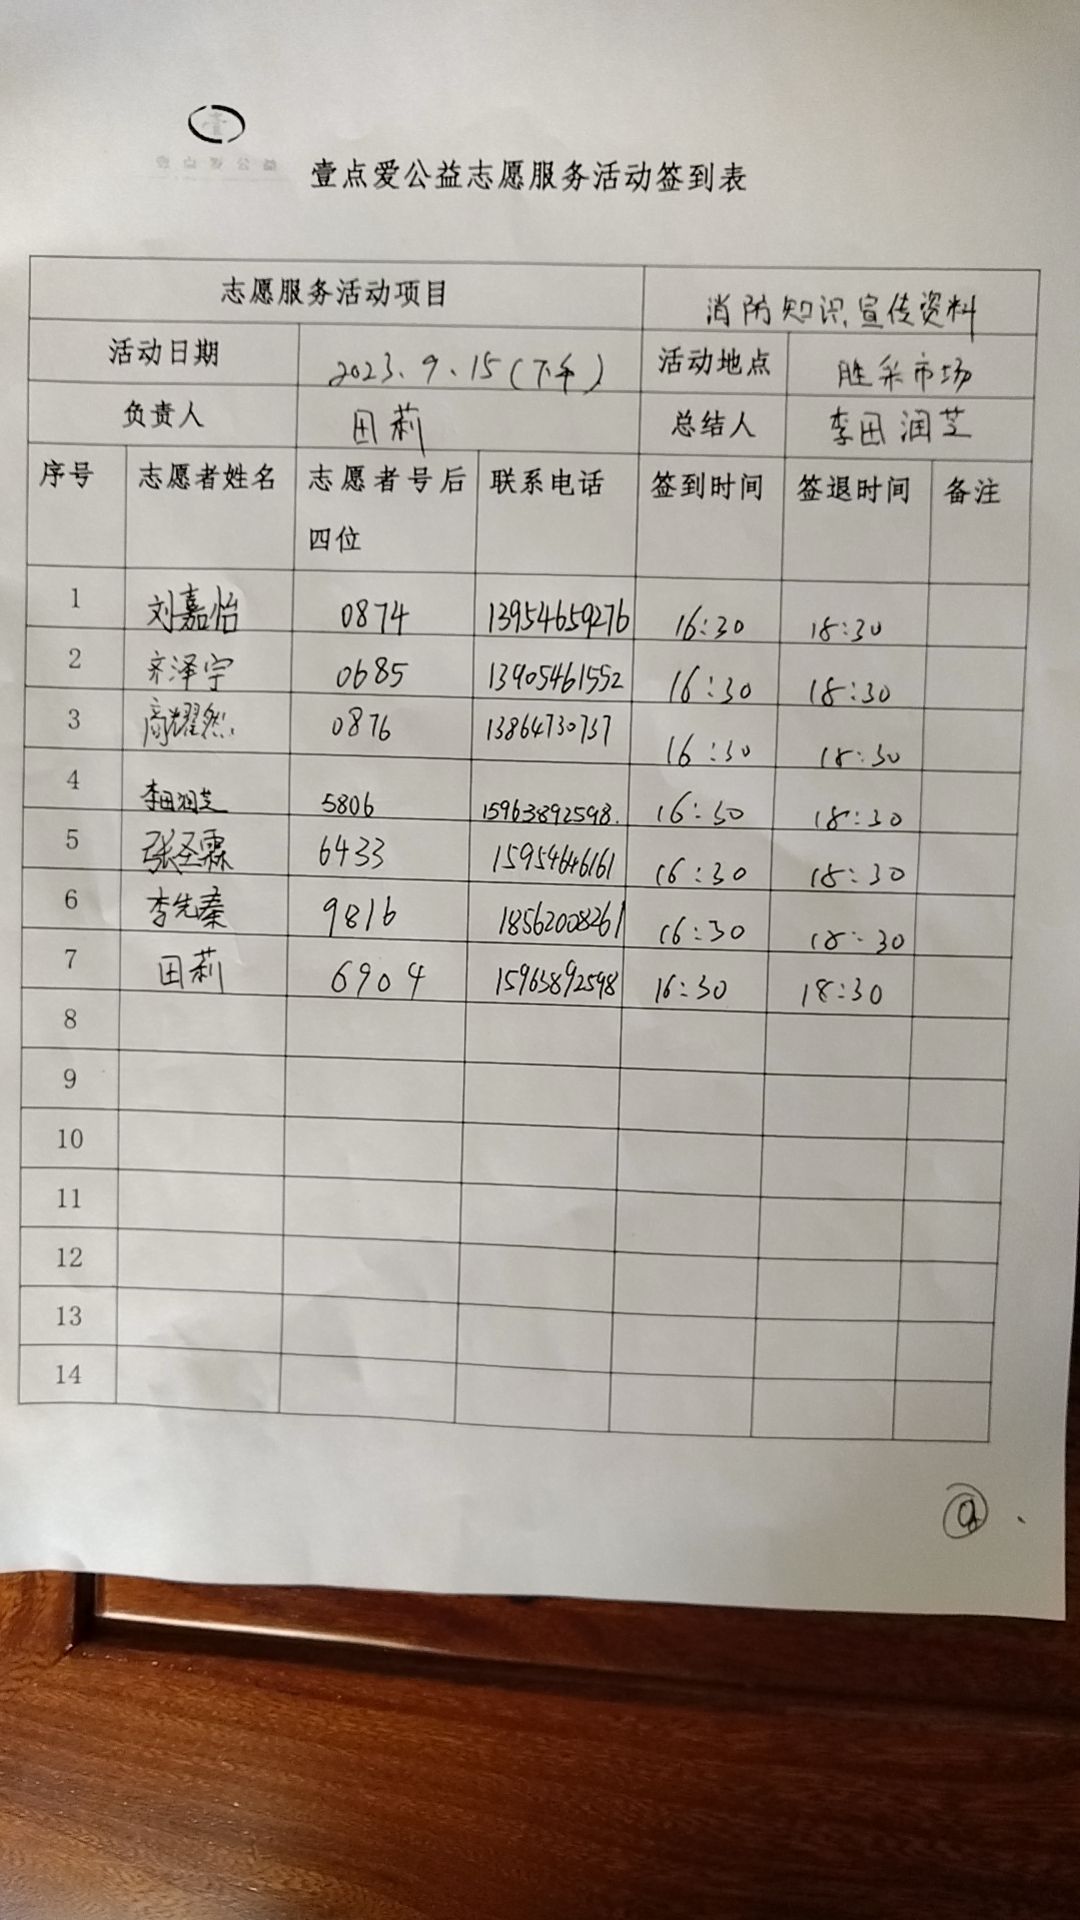 壹点爱公益志愿服务活动签到表
志愿服务活动项目 消防知识宣传资料
活动日期 2023.9.15(下午) 活动地点 胜采市场
负责人 田莉 总结人 李田润芝
序号 志愿者姓名 志愿者号后四位 联系电话 签到时间 签退时间 备注
1 刘嘉怡 0874 13954659276 16:30 18:30
2 齐泽宇 0685 13905461552 16:30 18:30
3 商耀然 0876 13864730737 16:30 18:30
4 李田润芝 5806 15963892598. 16:30 18:30
5 张圣霖 6433 15954646161 16:30 18:30
6 李先秦 9816 18562008261 16:30 18:30
7 田莉 6904 15963892598 16:30 18:30
8
9
10
11
12
13
14